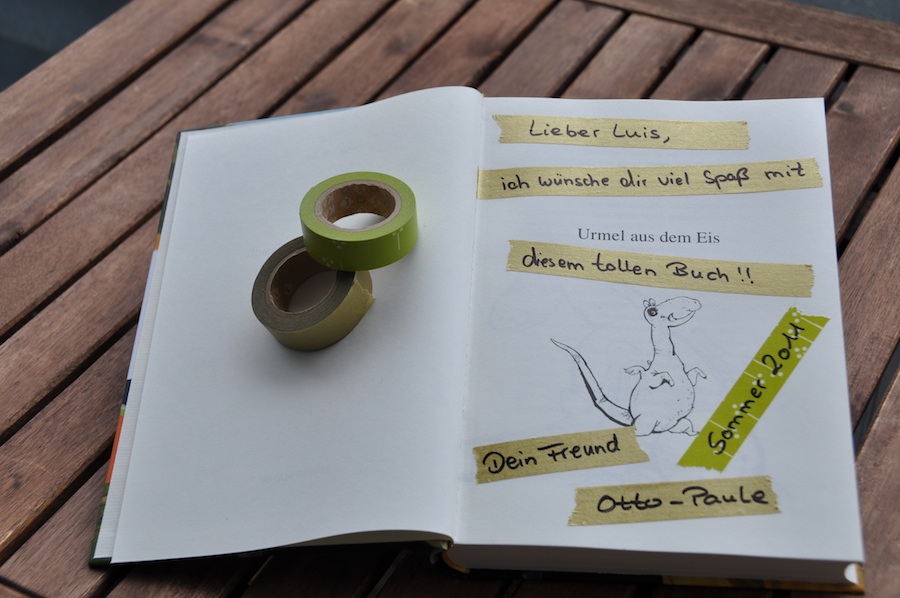 Lieber Luis,
ich wünsche dir viel Spaß mit
Urmel aus dem Eis
diesem tollen Buch!!
Sommer 2011
Dein Freund
Otto-Paule